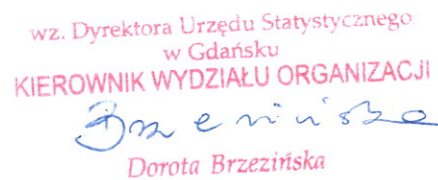 wz. Dyrektora Urzędu Statystycznego
w Gdańsku
KIEROWNIK WYDZIAŁU ORGANIZACJI
Brzezińska
Dorota Brzezińska